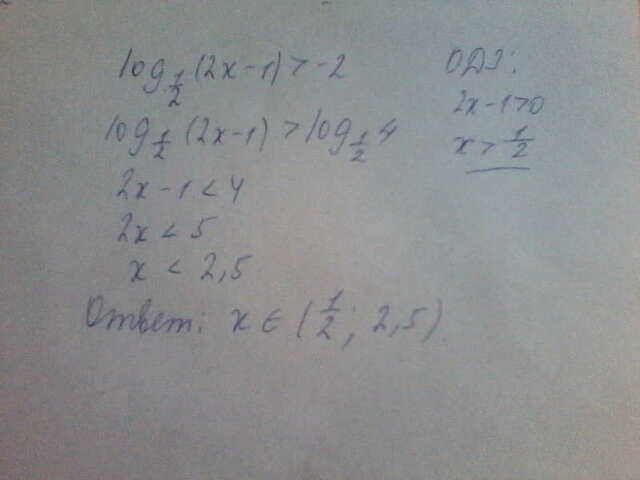 log_{1/2}(2x-1)>-2
log_{1/2}(2x-1)>log_{1/2}4
2x-1<4
2x<5
x<2,5
Ответ: x∈(1/2; 2,5)
ОДЗ:
2x-1>0
x>1/2